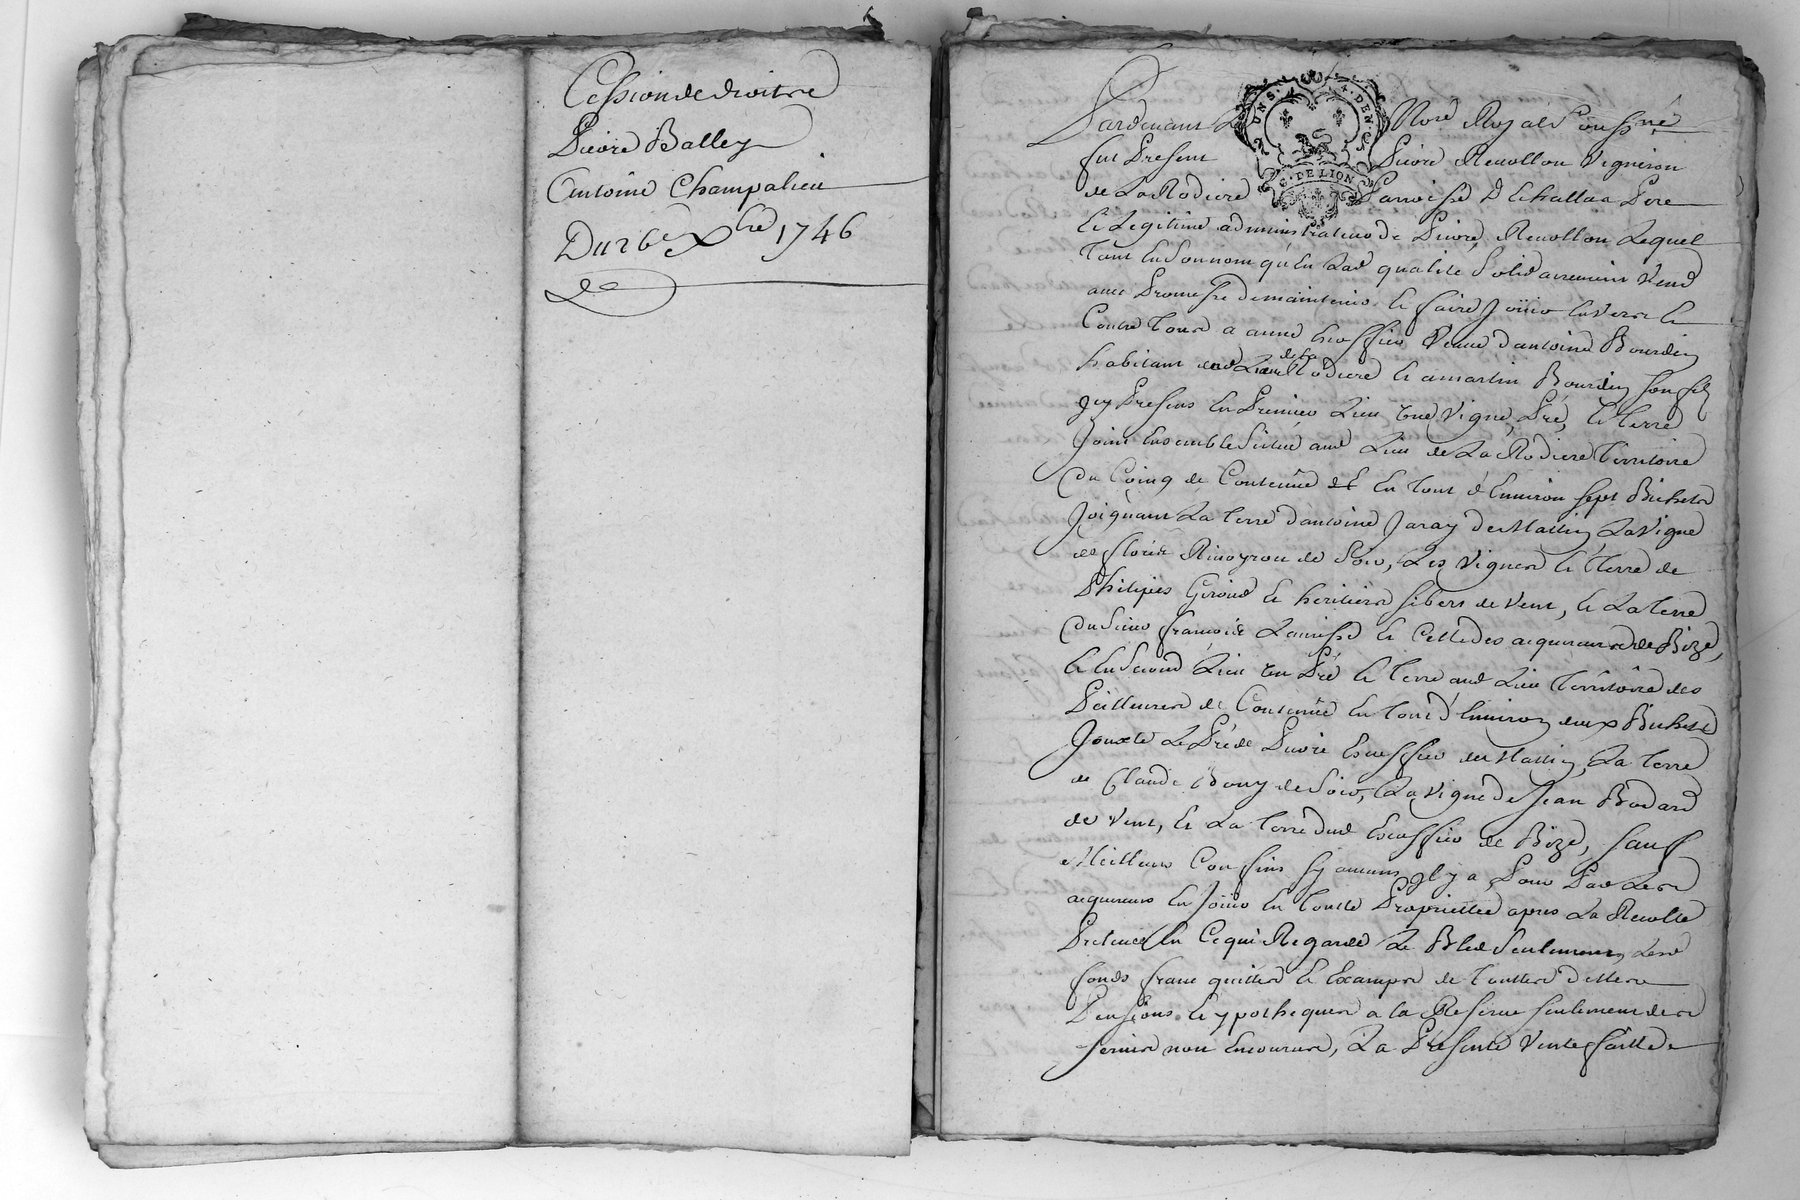 Cession de droits
Pierre Balley
Antoine Champalieu
Du 26e Xbre 1746
Pardevant Le Nore Royal Soussné
UN S. 4. DEN
G. DE LION
fut Present Pierre Revollon Vigneron
de La Rodiere Parroisse D'Echallaa Pere
Et Legitime administrateur de Pierre Revollon Lequel
Tant En Son nom qu'En Lad qualité Solidairement Vend
avec Promesse de maintenir Et faire Jöuir Envers Et
Contre Tous a anne Veuve d'antoine Bourdin
habitant de La Rodiere Et a martin Bourdin Son fils
Jcy Presens En Premier Lieu une Vigne, Pré, Et Terre
Joint Ensemble Situé aud Lieu de La Rodiere Territoire
du Coing de Contenüe En Tout d'Environ Sept Bichets
Joignant La Terre d'antoine Jaray de Matin, La Vigne
de fleurie de Soir, Les Vignes Et Terre de
Philipes Giroud Et heritiers de Vent, Et La Terre
du Sieur francois Et Celle des acquereurs de Bize,
Et En Second Lieu un Pré Et Terre aud Lieu Territoire des
de Contenüe En Tout d'Environ deux Bichets
Jouxte Le Pré de Pierre de Matin, La Terre
de Claude Bony de Soir, La Vigne de Jean Bodard
de Vent, Et La Terre dud de Bize, Sauf
Meilleurs Confins Sy aucuns Jl y a Pour Par Les
acquereurs En Jöuir En Toutte Proprietté apres La Recolte
En Ce qui Regarde Le Bled Seulement, Lesd
fonds franc quittes Et Exampts de Touttes Dettes
Pensions Et ypotheques a la Reserve Seulement des
Servis non Encourus, La Presente Vente faitte